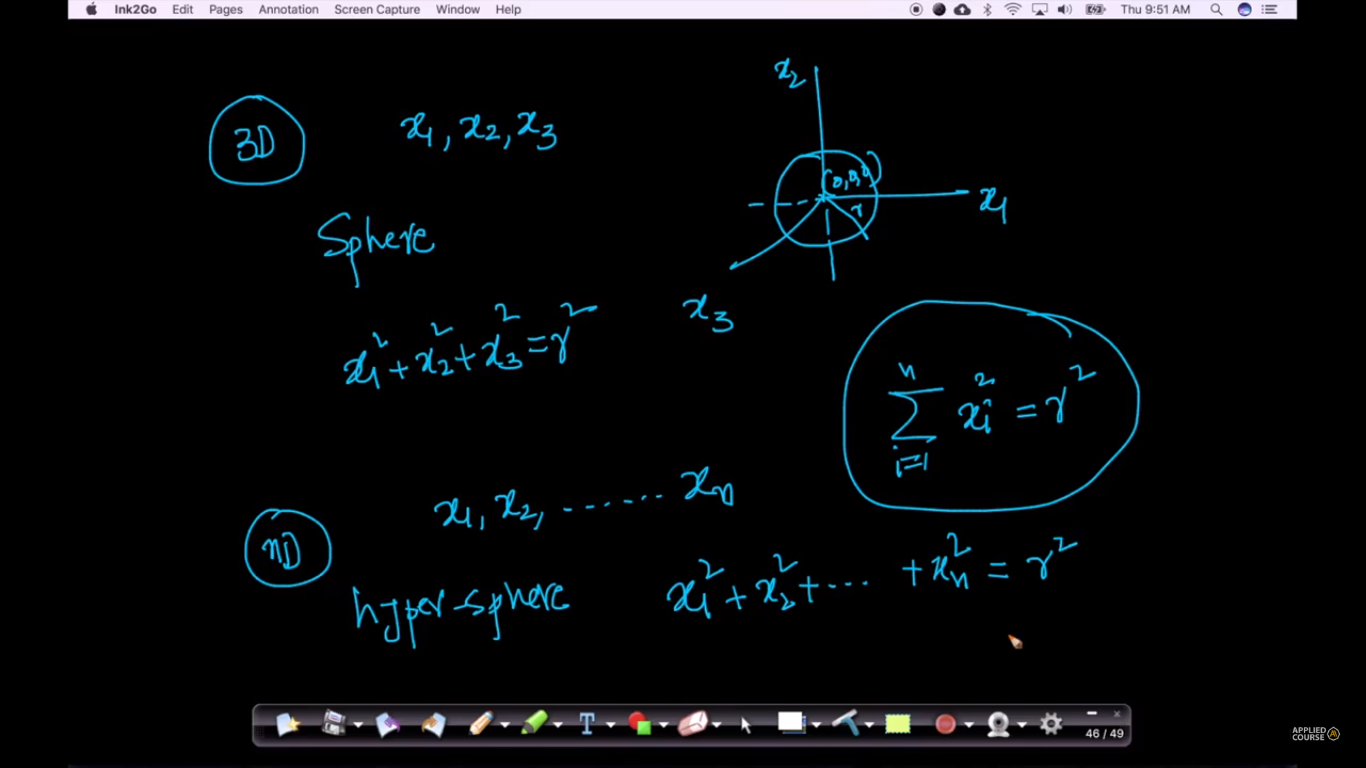 Ink2Go Edit Pages Annotation Screen Capture Window Help Thu 9:51 AM
3D x₁, x₂, x₃
x₂
(0,0,0)
r
x₁
Sphere
x₃
x₁² + x₂² + x₃² = r²
n
∑ xᵢ² = r²
i=1
x₁, x₂, ....... xₙ
nD
hyper-sphere x₁² + x₂² + ... + xₙ² = r²
46 / 49
APPLIED
COURSE